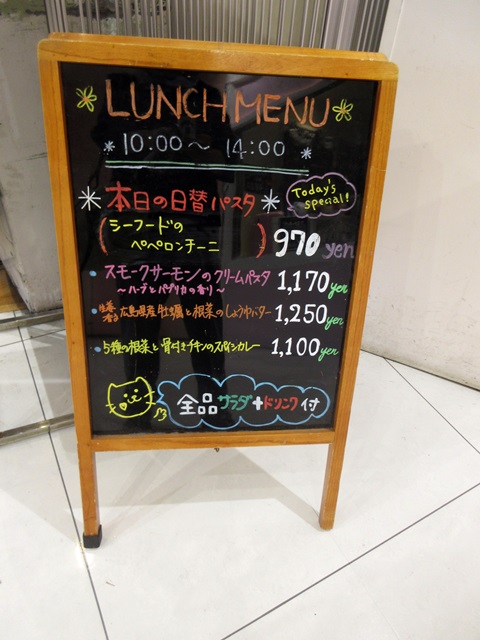 LUNCH MENU
10:00〜14:00
本日の日替パスタ
Today's special!
(シーフードのペペロンチーニ) 970 yen
スモークサーモンのクリームパスタ 1,170 yen
〜ハーブとパプリカの香り〜
広島県産牡蠣と根菜のしょうゆバター 1,250 yen
5種の根菜と骨付きチキンのスパイシカレー 1,100 yen
全品サラダ+ドリンク付